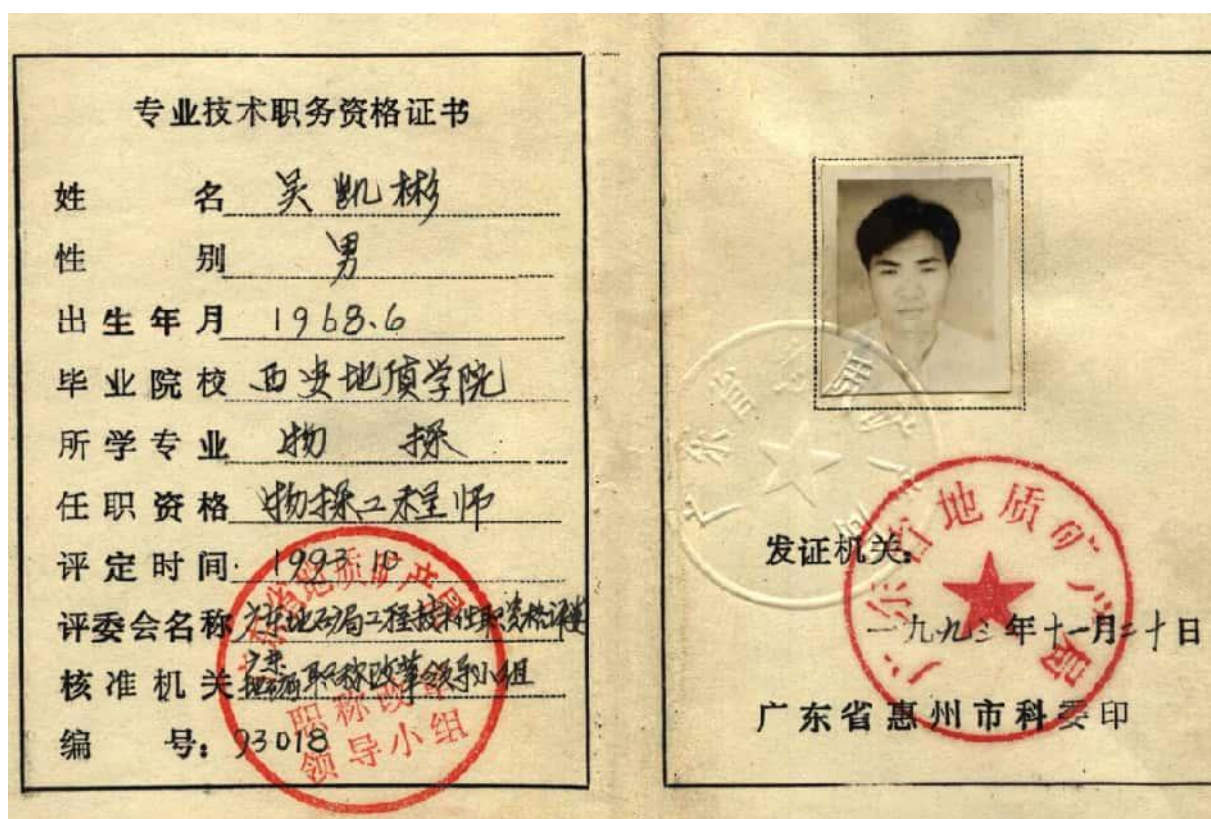 专业技术职务资格证书
姓名 吴凯彬
性别 男
出生年月 1968.6
毕业院校 西安地质学院
所学专业 物探
任职资格 物探工程师
评定时间: 1993.10
评委会名称 广东地矿局工程技术职资格评委
核准机关 广东地矿局职称改革领导小组
编号: 93018
广东省地质矿产局
职称改革
领导小组
广东省地质矿产局
发证机关:
广东省地质矿产局
一九九三年十一月二十日
广东省惠州市科委印